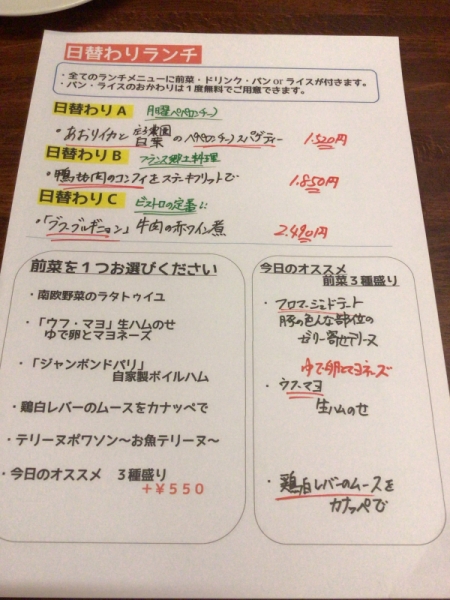 日替わりランチ
・全てのランチメニューに前菜・ドリンク・パン or ライスが付きます。
・パン・ライスのおかわりは１度無料でご用意できます。
日替わり A 月曜ペペロンチーノ
・あおりイカと 白菜 のペペロンチーノスパゲティー 1.520円
日替わり B フランス郷土料理
・鴨もも肉のコンフィをステーキフリットで 1.850円
日替わり C ビストロの定番に
・「ブフ・ブルギニョン」 牛肉の赤ワイン煮 2.490円
前菜を１つお選びください
・南欧野菜のラタトゥイユ
・「ウフ・マヨ」生ハムのせ
ゆで卵とマヨネーズ
・「ジャンボンドパリ」
自家製ボイルハム
・鶏白レバーのムースをカナッペで
・テリーヌポワソン～お魚テリーヌ～
・今日のオススメ ３種盛り
＋￥５５０
今日のオススメ
前菜３種盛り
・フロマージュドテット
豚の色んな部位の
ゼリー寄せテリーヌ
ゆで卵とマヨネーズ
・ウフ・マヨ
生ハムのせ
・鶏白レバーのムースを
カナッペで